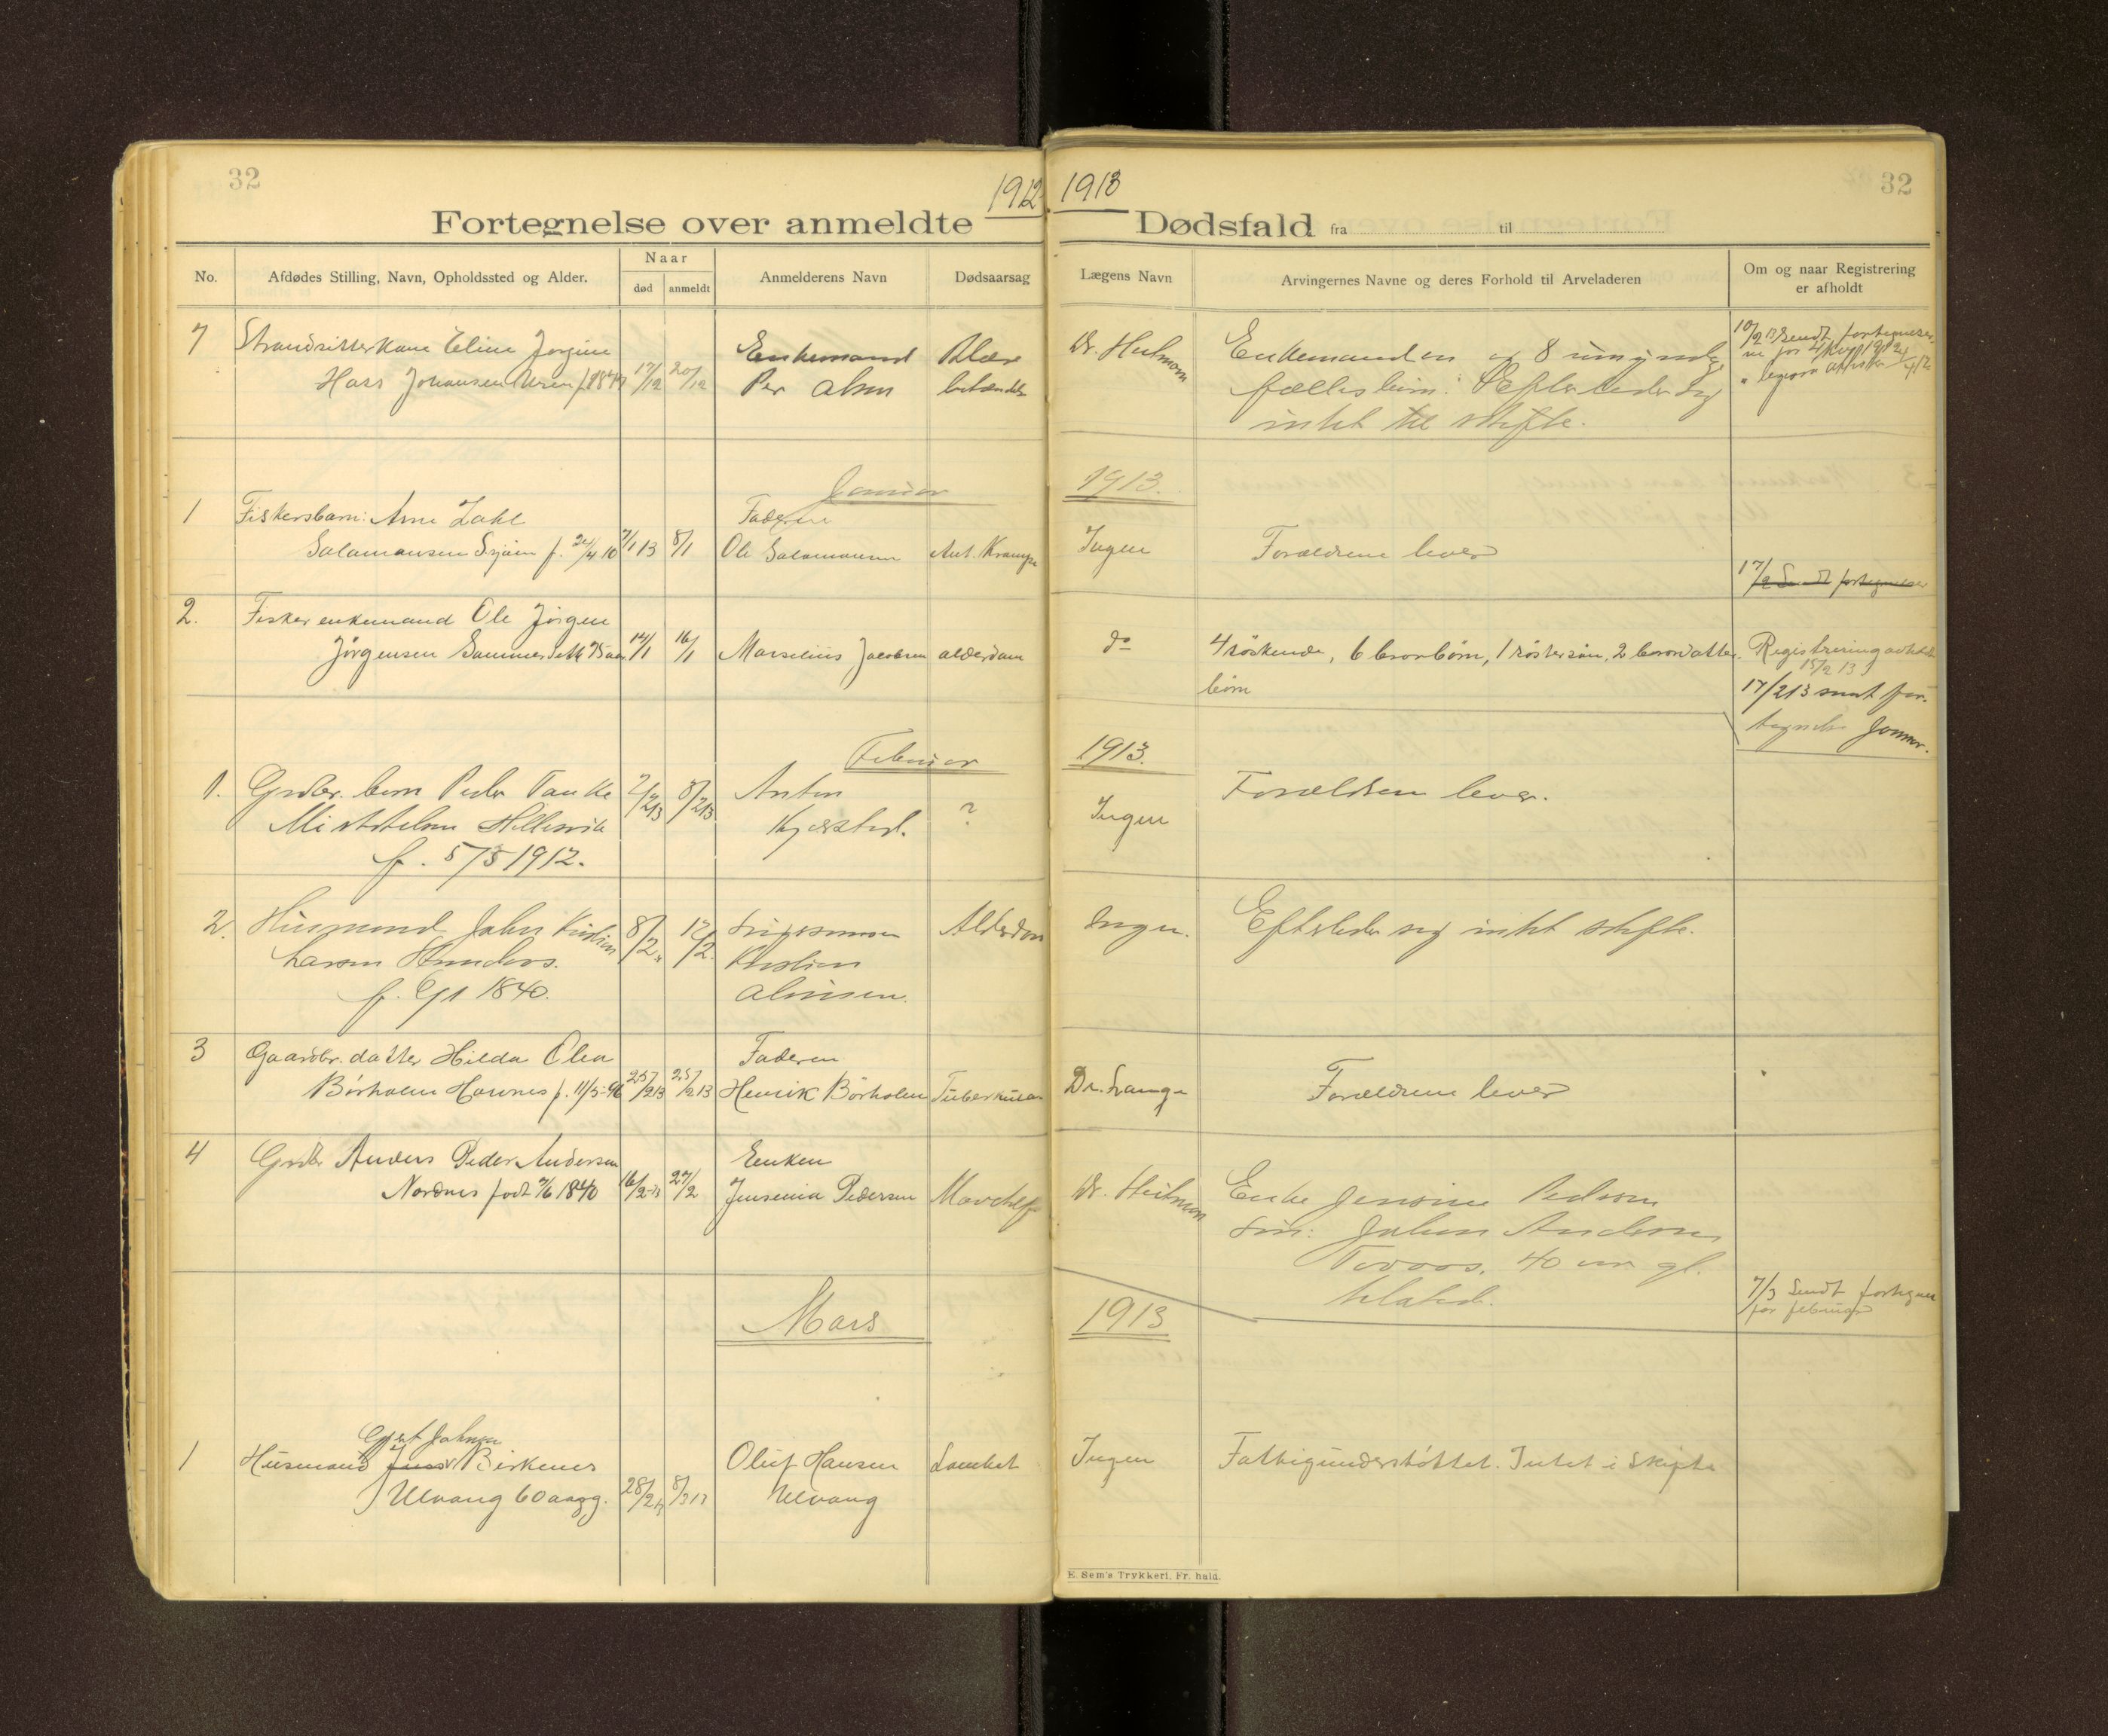 32
1912
Fortegnelse over anmeldte
No.
Afdødes Stilling, Navn, Opholdssted og Alder.
Naar
død
anmeldt
Anmelderens Navn
Dødsaarsag
1913
32
Dødsfald fra til
Lægens Navn
Arvingernes Navne og deres Forhold til Arveladeren
Om og naar Registrering
er afholdt
7
Strandsitterkone Eline Jorgine
Hass Johansen
17/12
20/12
Enkemand
Per Olsen
Blære
betændelse
Dr.
Enkemanden og 8 umyndige
fællesbørn. Efterlader sig
intet til skifte.
10/2 13 Sendt fortegnelse
Januar
1913.
1
Fiskersbarn: Arne Zahl
Salamonsen f. 24/4 10
7/1 13
8/1
Faderen
Ole Salamonsen
Ant. Krampe
Ingen
Forældrene lever
17/2 Sendt fortegnelse
2.
Fisker enkemand Ole Jørgen
Jørgensen 75 aar
14/1
16/1
Marselius Jacobsen
alderdom
do
4 søskende, 6 brorbørn, 1 søstersøn, 2 brordatter
børn
Registrering avholdt
15/2 13
17/2 13 sendt for-
tegnelse Januar.
Februar
1913.
1.
Grdbr. barn Peder Tanke
Hillesvik
f. 5/5 1912.
7/2 13
8/2 13
Anton
?
Ingen
Forældrene lever.
2.
Husmand Johan Kristian
Larsen
f. 1840.
8/2
12/2
Kristian
Alderdom
Ingen.
Efterlader sig intet skifte.
3
Gaardbr. datter Hilda Olea
Børholm Havnnes f. 11/5-96
25/2 13
25/2 13
Faderen
Henrik Børholm
Tuberkulose
Dr. Lange
Forældrene lever
4
Grdbr Anders Peder Andersen
Nordnes født 1840
16/2-13
27/2
Enken
Jensenia Pedersen
Dr.
Enke Jensine Pedersen
Søn: Johan Andersen
40 aar gl.
7/3 Sendt fortegnelse
for februar
Mars
1913
1
Gjert Johnsen
Husmand Birkenes
Ulvang 60 aar g.
28/2 13
8/3 13
Oluf Hansen
Ulvang
Lamhet
Ingen
Fattigunderstøttet. Intet i Skifte
E. Sem's Trykkeri, Fr. hald.